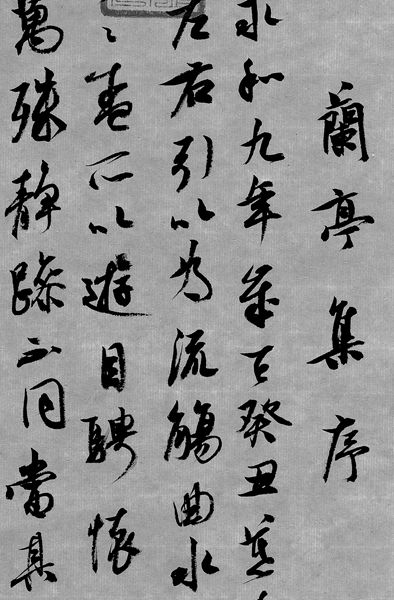 蘭亭集序
永和九年歲在癸丑暮
左右引以為流觴曲水
之盛所以遊目騁懷
萬殊靜躁不同當其